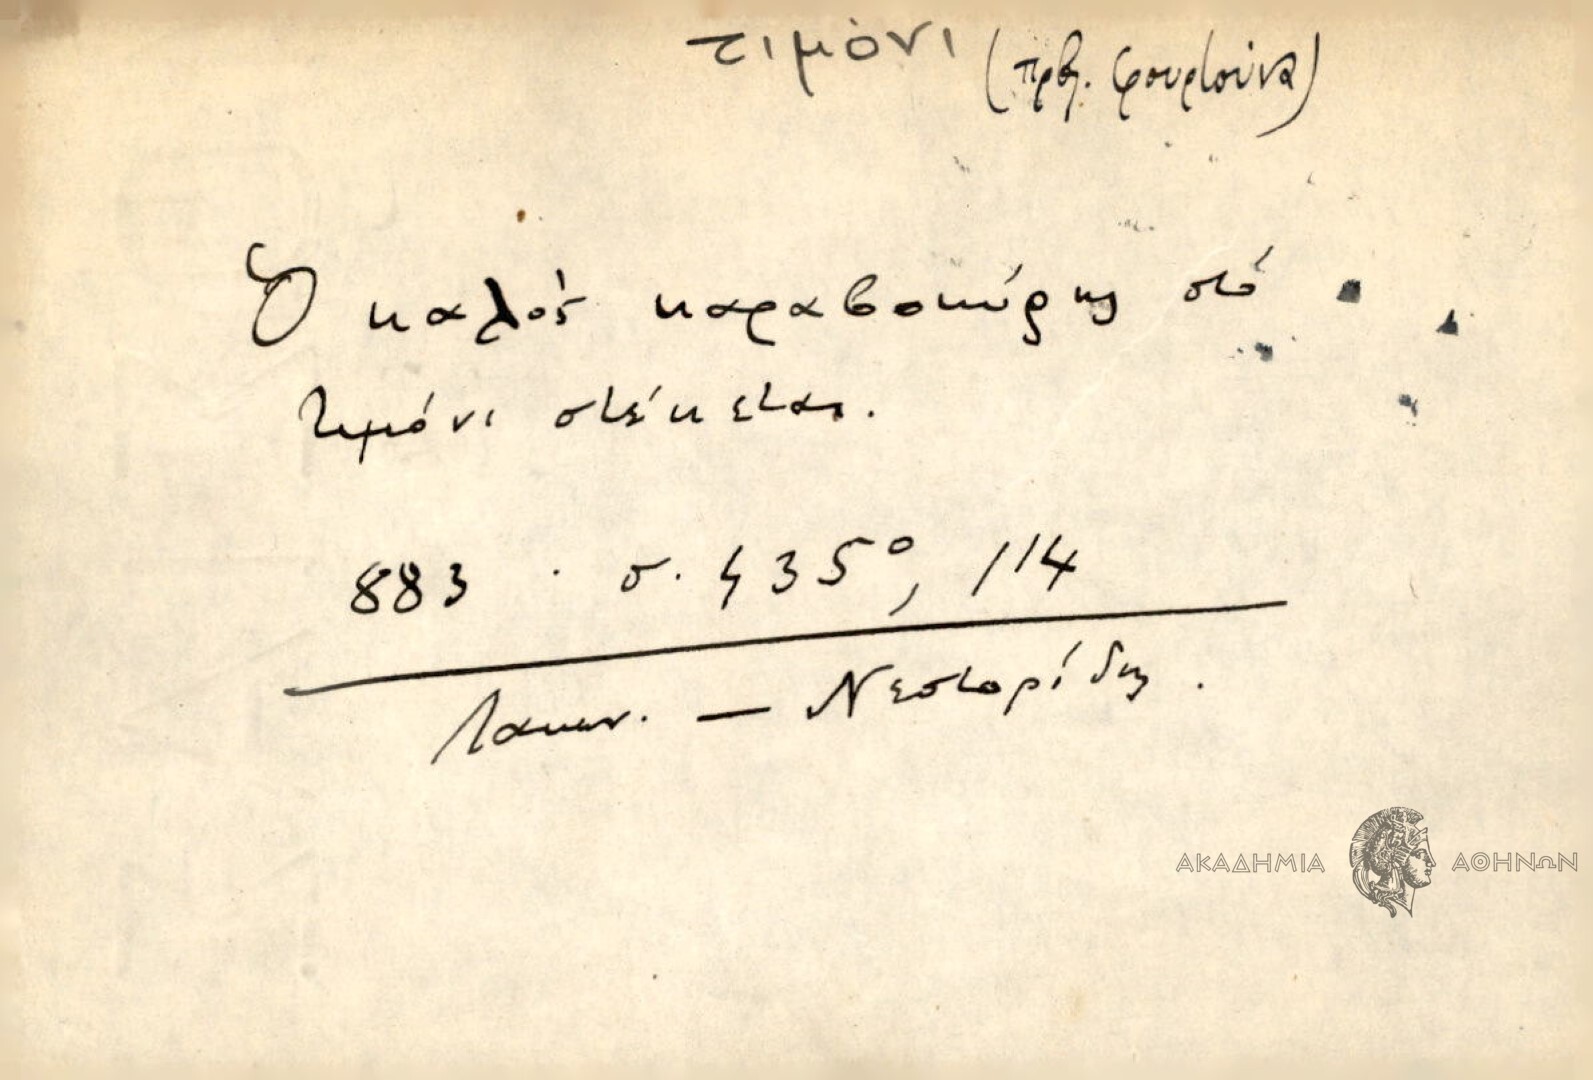 τιμόνι (πρβλ. φουρτούνα)
Ὁ καλὸς καραβοκύρης στὸ
τιμόνι στέκεται.
883 . σ. 435°, 114
Λακων. — Νεστορίδης.
ΑΚΑΔΗΜΙΑ ΑΘΗΝΩΝ